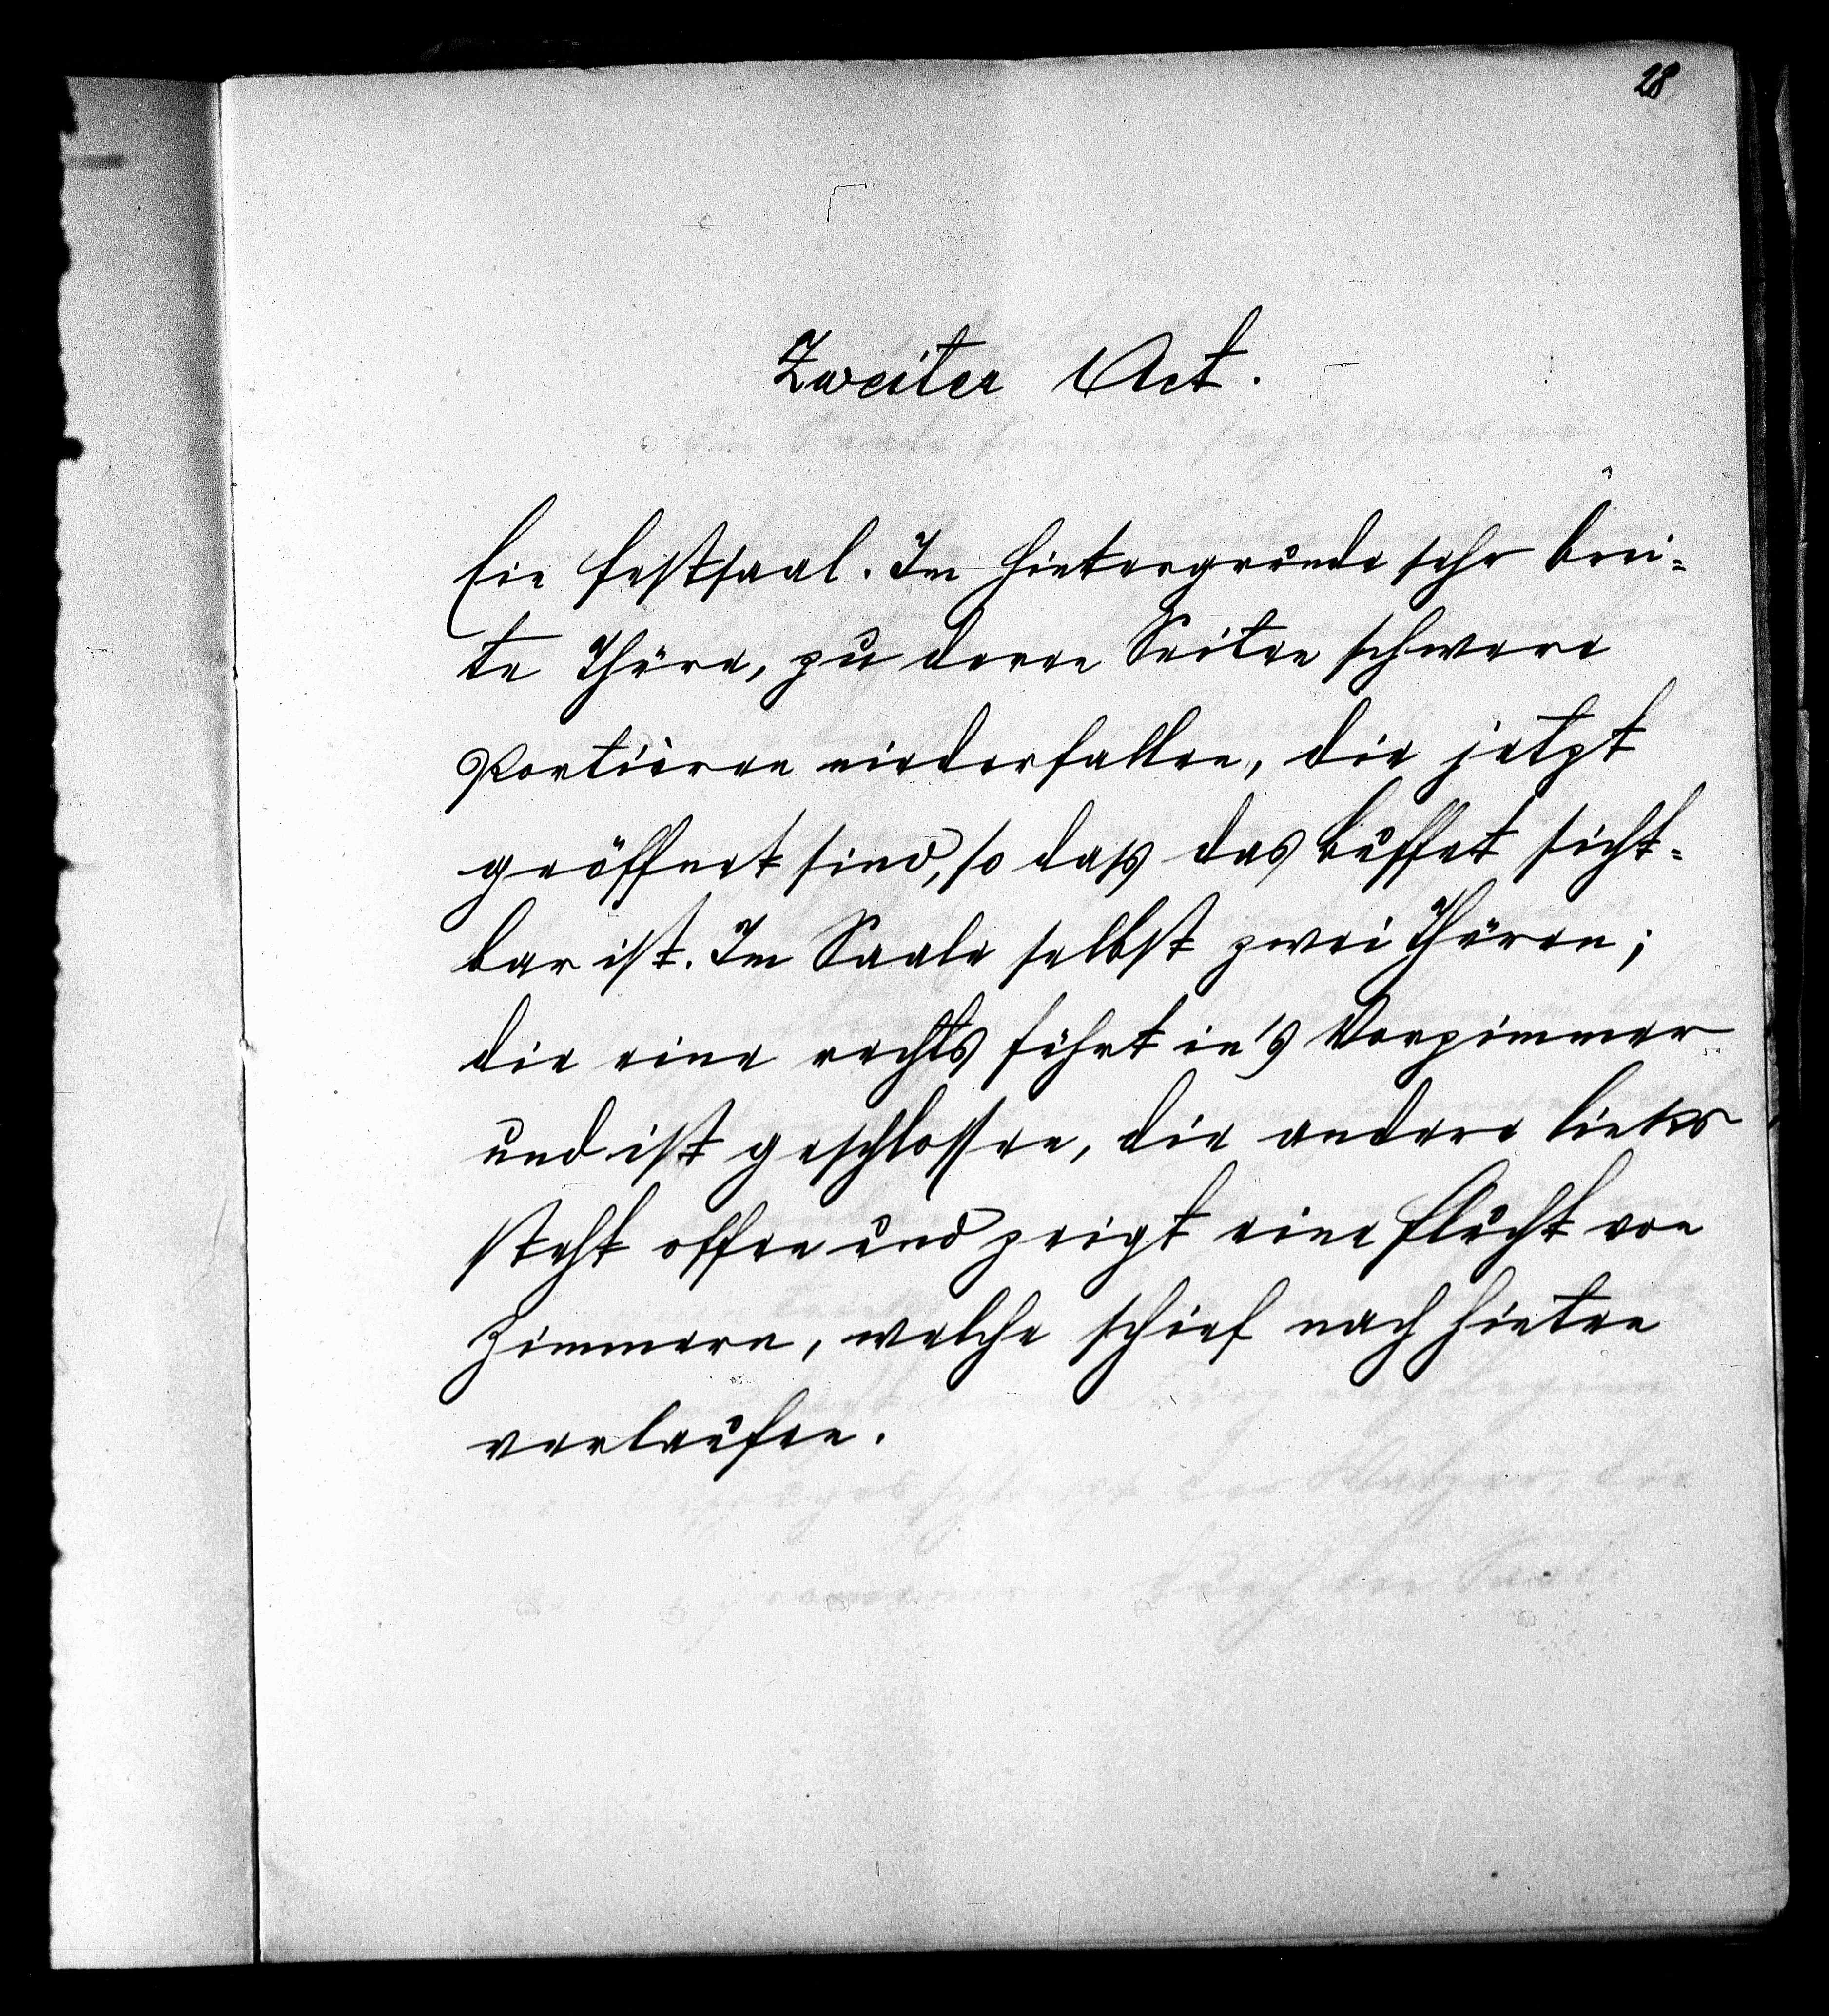 28
Zweiter Act.
Ein Festsaal. Im Hintergrunde sehr brei=
te Thüre, zu deren Seiten schwere
Portièren niederfallen, die jetzt
geöffnet sind, so daß das Buffet sicht=
bar ist. Im Saale selbst zwei Thüren;
die eine rechts führt in's Vorzimmer
und ist geschlossen, die andere links
steht offen und zeigt eine Flucht von
Zimmern, welche schief nach hinten
verlaufen.